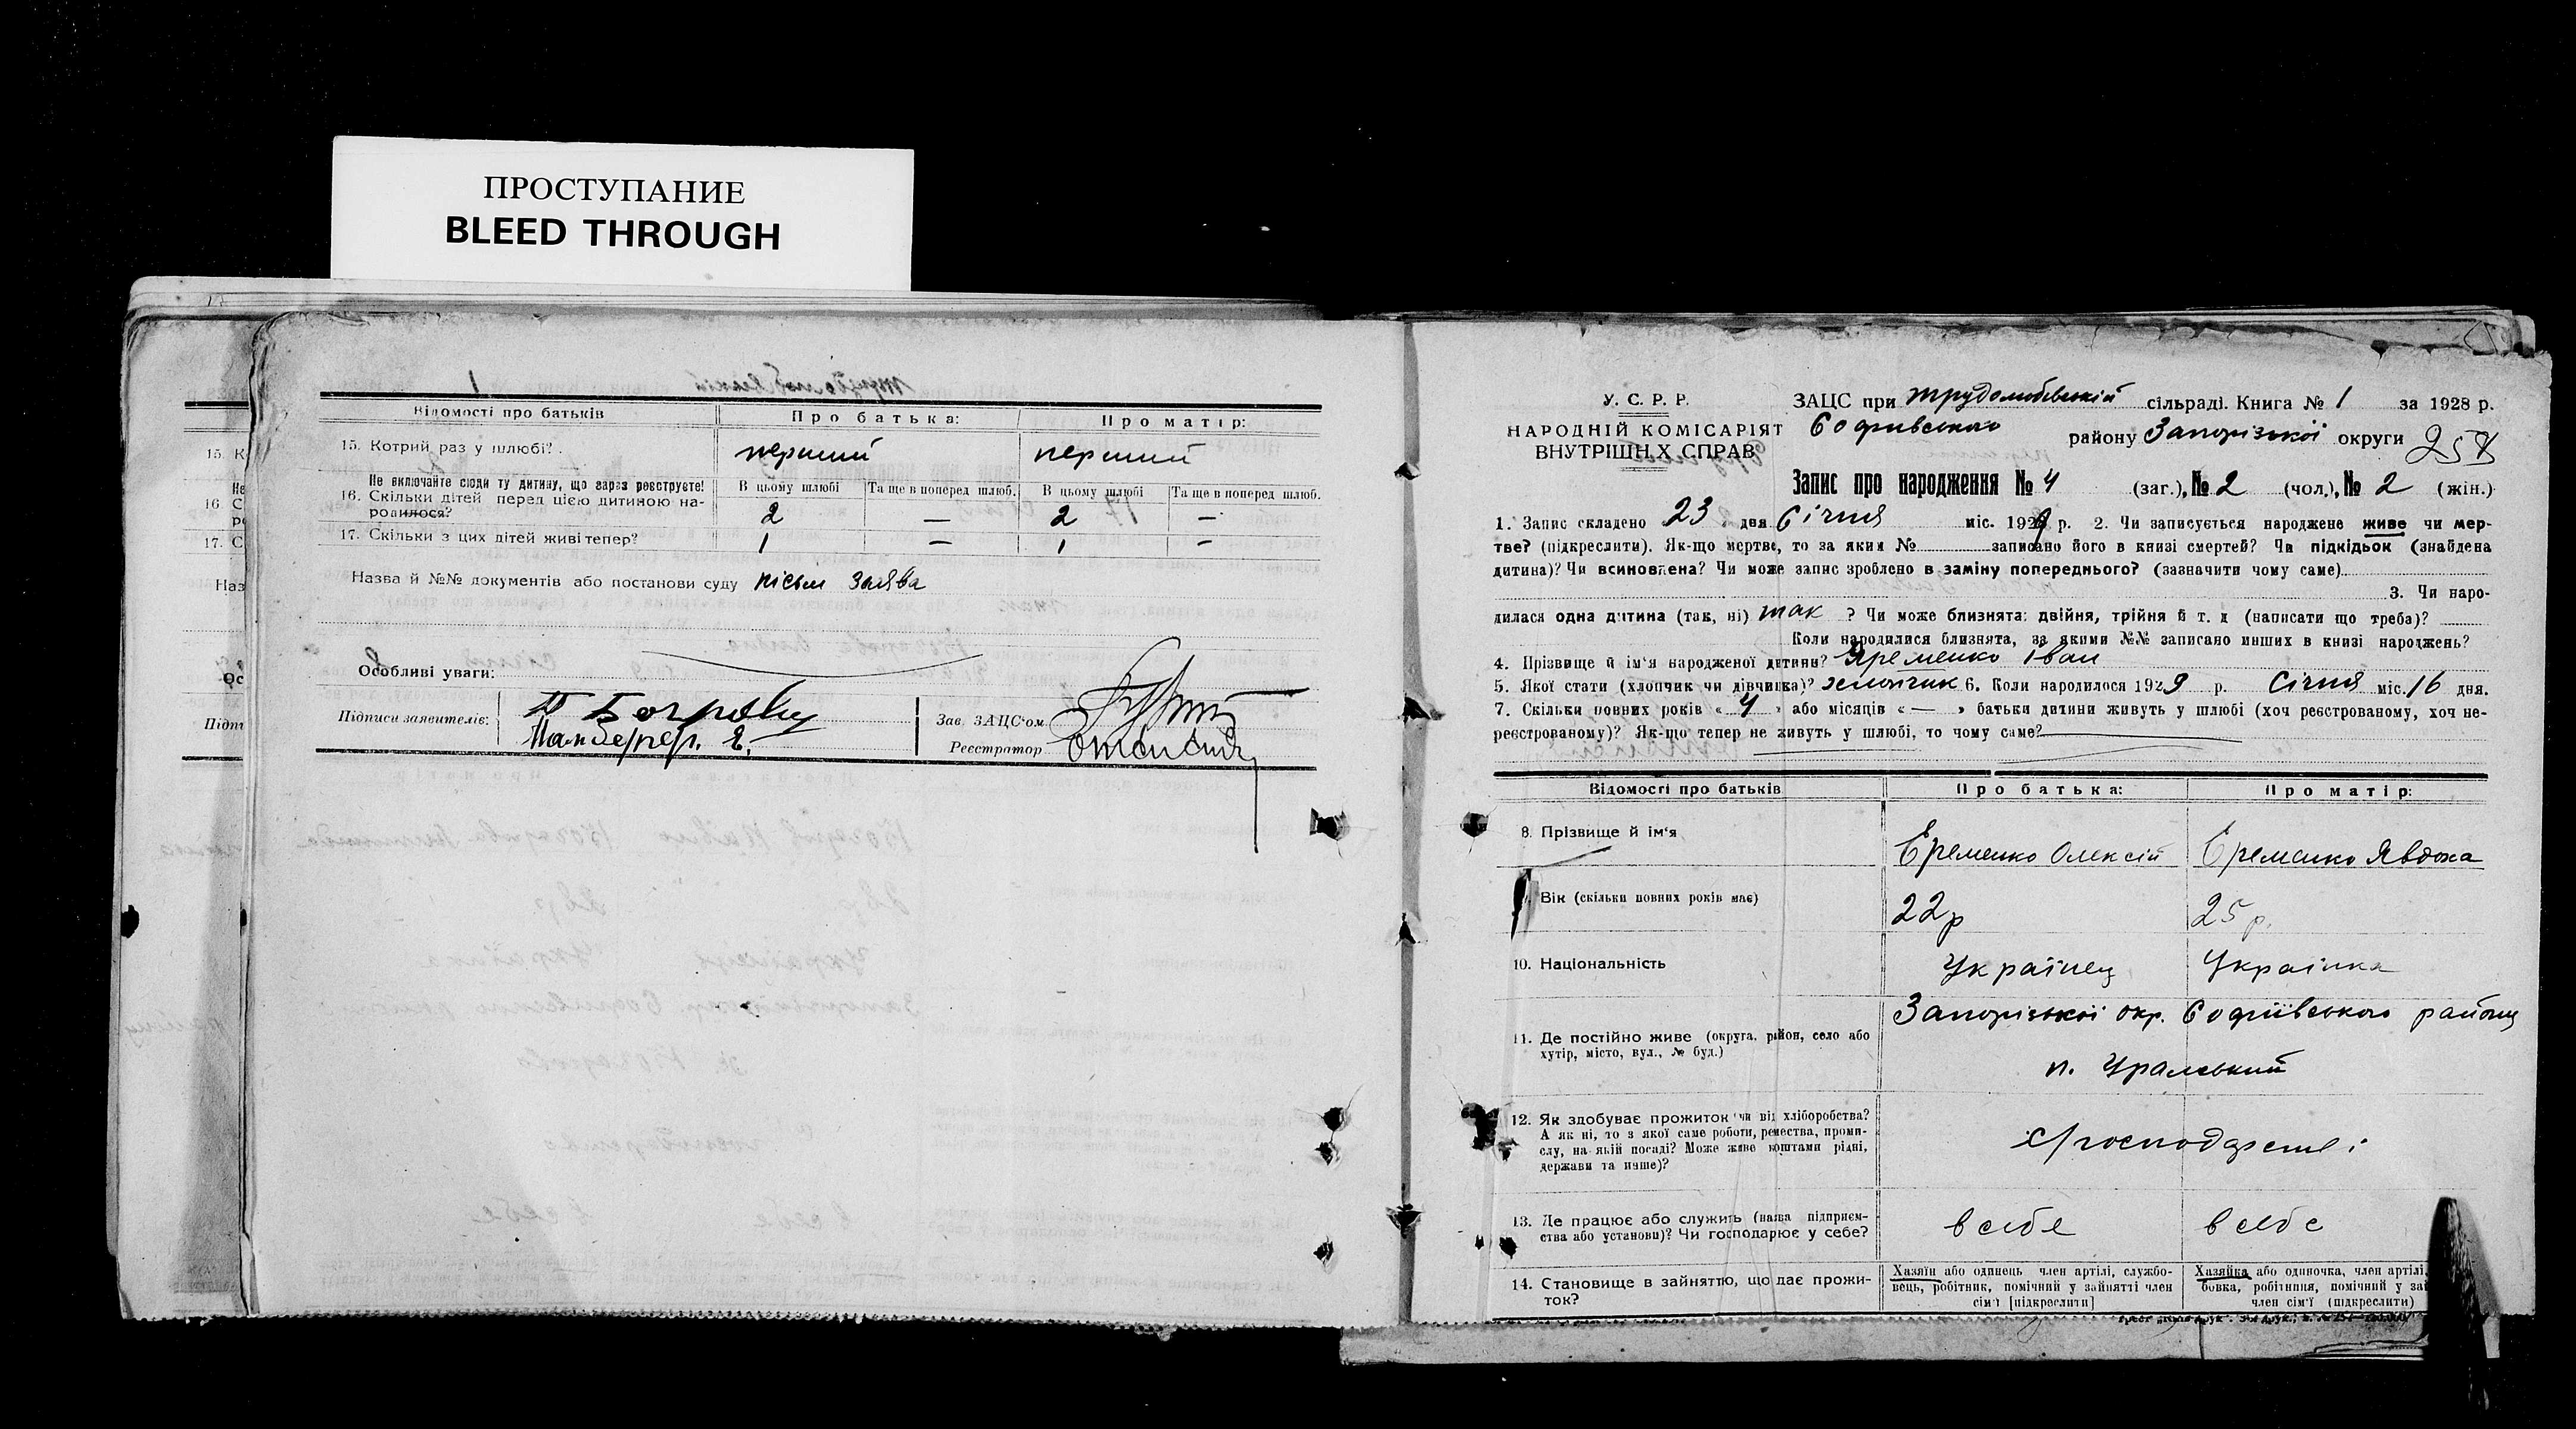 ПРОСТУПАНИЕ
BLEED THROUGH
Відомості про батьків
Про батька:
Про матір:
15. Котрий раз у шлюбі?
перший
перший
Не включайте сюди ту дитину, що зараз реєструєте!
16. Скільки дітей перед цією дитиною на-
родилося?
В цьому шлюбі
Та ще в поперед шлюб.
В цьому шлюбі
Та ще в поперед шлюб.
2
—
2
—
17. Скільки з цих дітей живі тепер?
1
—
1
—
Назва й №№ документів або постанови суду письм заява
Особливі уваги:
Підписи заявителів:
Зав. ЗАЦС'ом
Реєстратор
15. К
Не
16. С
ро
17. С
Наз
Ос
Підпи
У. С. Р. Р.
НАРОДНІЙ КОМІСАРІЯТ
ВНУТРІШН.Х СПРАВ
ЗАЦС при Трудолюбівській сільраді. Книга № 1 за 1928 р.
Софиівського району Запорізької округи
Запис про народження № 4 (заг.), № 2 (чол.), № 2 (жін.)
1. Запис складено 23 дня Січня міс. 1929 р. 2. Чи записується народжене живе чи мер-
тве? (підкреслити). Як-що мертве, то за яким № записано його в книзі смертей? Чи підкідьок (знайдена
дитина)? Чи всиновлена? Чи може запис зроблено в заміну попереднього? (зазначити чому саме)
3. Чи наро-
дилася одна дитина (так, ні) так ? Чи може близнята: двійня, трійня й т. д (написати що треба)?
Коли народилися близнята, за якими №№ записано инших в книзі народжень?
4. Прізвище й ім'я народженої дитини? Яременко Іван
5. Якої стати (хлопчик чи дівчинка)? хлопчик 6. Коли народилося 1929 р. Січня міс. 16 дня.
7. Скільки повних років « 4 » або місяців « — » батьки дитини живуть у шлюбі (хоч реєстрованому, хоч не-
реєстрованому)? Як-що тепер не живуть у шлюбі, то чому саме?
Відомості про батьків
Про батька:
Про матір:
8. Прізвище й ім'я
Єременко Олексій
Єременко Явдоха
Вік (скільки повних років має)
22 р
25 р.
10. Національність
Українец
Українка
11. Де постійно живе (округа, район, село або
хутір, місто, вул., № буд.)
Запорізької окр. Софиївського району
п. Уральський
12. Як здобуває прожиток чи від хліборобства?
А як ні, то з якої саме роботи, ремества, проми-
слу, на якій посаді? Може живе коштами рідні,
держави та инше)?
с/господарстві
13. Де працює або служить (назва підприєм-
ства або установи)? Чи господарює у себе?
в себе
в себе
14. Становище в зайняттю, що дає прожи-
ток?
Хазяїн або одинець член артілі, службо-
вець, робітник, помічний у зайнятті член
сім'ї [підкреслити]
Хазяйка або одиночка, член артілі,
бовка, робітниця, помічний у зай
член сім'ї (підкреслити)